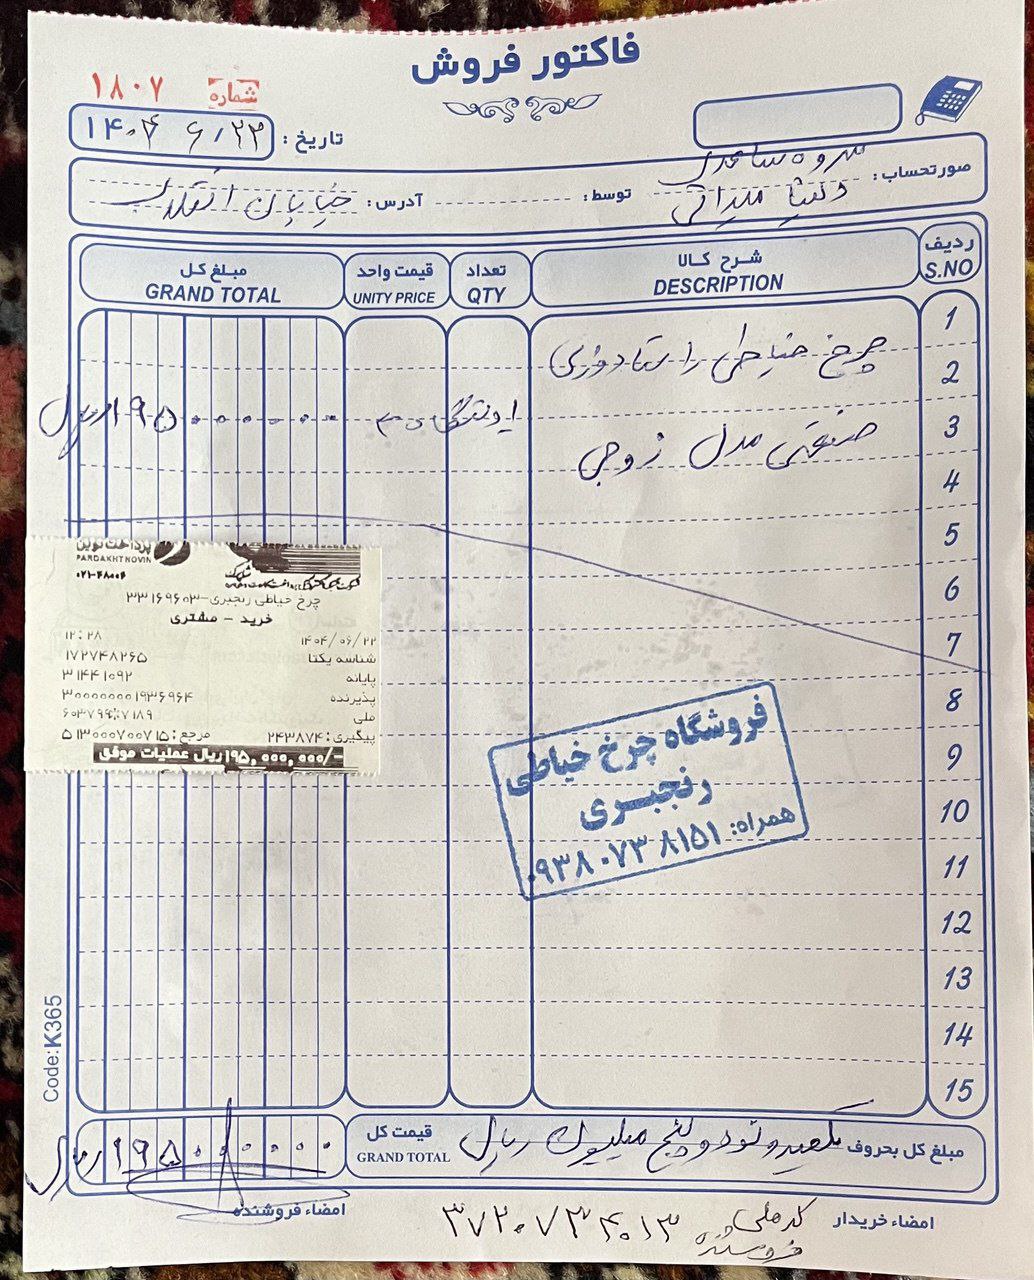 فاکتور فروش
شماره ۱۸۰۷
تاریخ : ۱۴۰۴ ۶/۲۲
صورتحساب :
توسط :
آدرس : خیابان انقلاب
ردیف شرح کالا تعداد قیمت واحد مبلغ کل
S.NO DESCRIPTION QTY UNITY PRICE GRAND TOTAL
1
چرخ خیاطی راستادوزی
2
صنعتی مدل زوجی
3
۱۹۵۰۰۰۰۰۰ ریال
4
5
6
7
8
9
10
11
12
13
14
15
پرداخت نوین
PARDAKHT NOVIN
۰۲۱-۴۸۰۰۴
چرخ خیاطی رنجبری-۳۳۱۶۹۶۰۳
خرید - مشتری
۱۴۰۴/۰۶/۲۲ ۱۲:۲۸
شناسه یکتا ۱۷۲۷۴۸۲۶۵
پایانه ۳۱۴۴۱۰۹۲
پذیرنده ۳۰۰۰۰۰۰۰۱۹۳۶۹۶۴
ملی
پیگیری: ۲۴۳۸۷۴ مرجع: ۵۱۳۰۰۰۷۰۰۷۱۵
۱۹۵,۰۰۰,۰۰۰/- ریال عملیات موفق
فروشگاه چرخ خیاطی
رنجبری
همراه: ۰۹۳۸۰۷۳۸۱۵۱
Code: K365
مبلغ کل بحروف یکصد و نود و پنج میلیون ریال
قیمت کل
GRAND TOTAL
۱۹۵۰۰۰۰۰۰ ریال
امضاء خریدار
کد ملی
فروشنده
۳۷۲۰۷۳۴۰۱۳
امضاء فروشنده